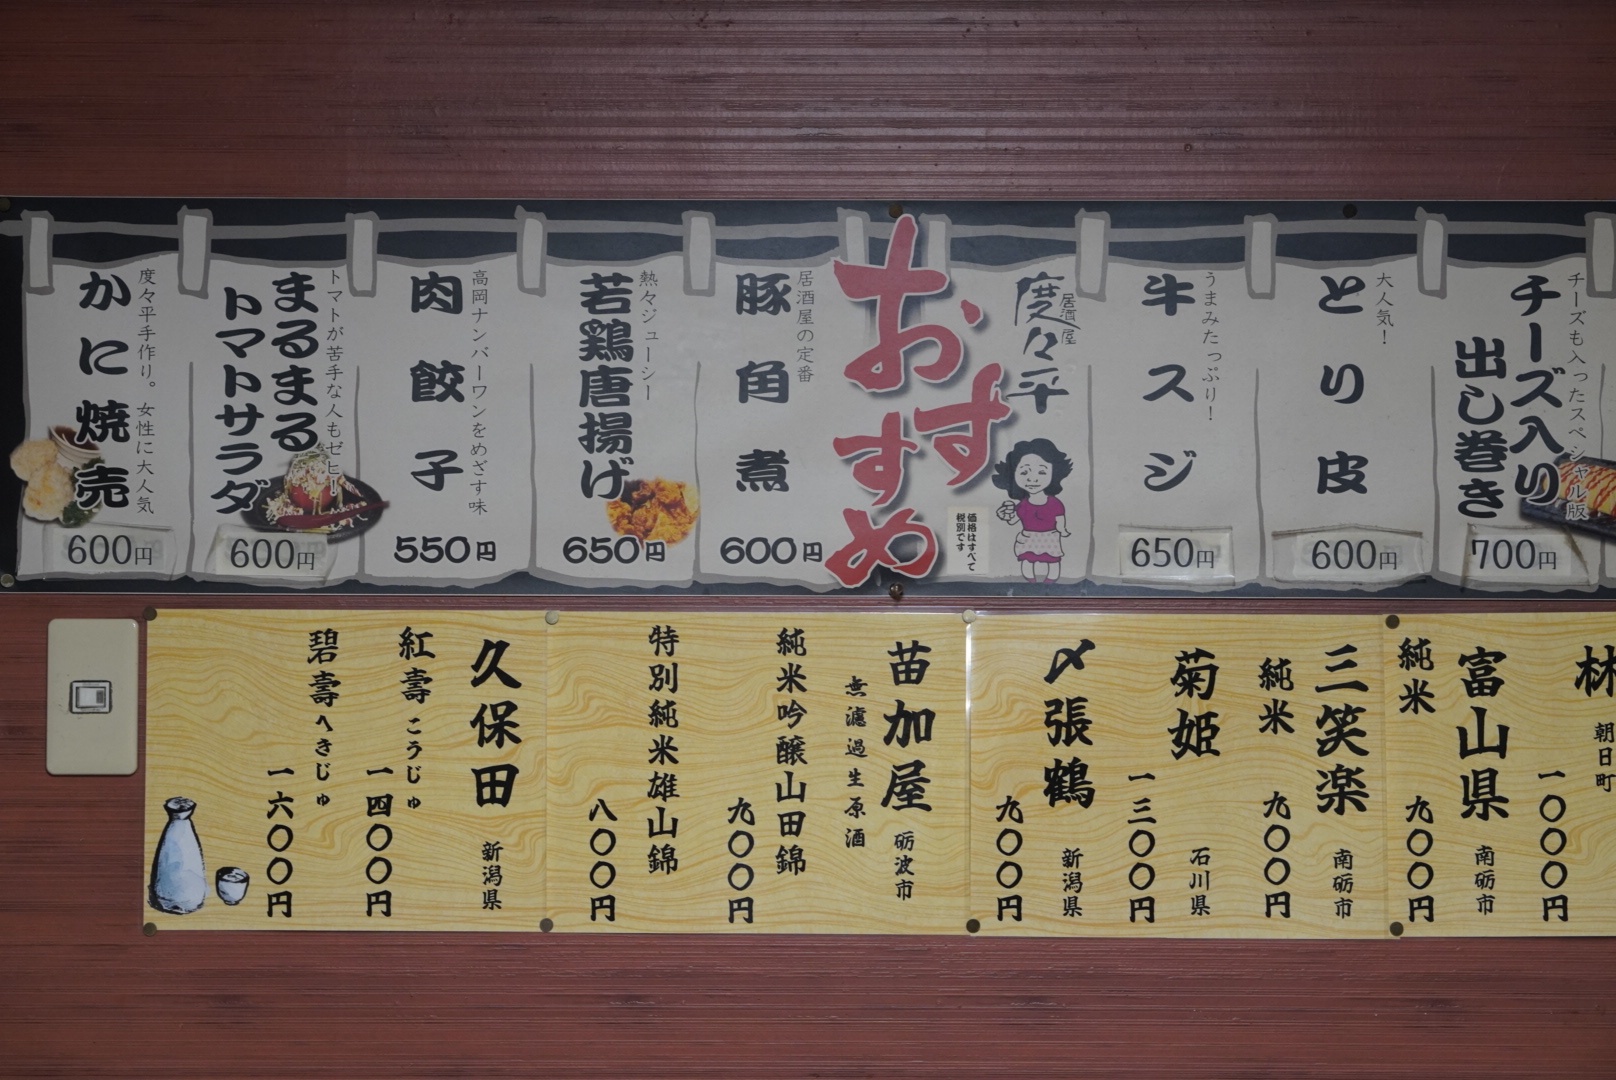 チーズも入ったスペシャル版
チーズ入り
出し巻き
700円
大人気!
とり皮
600円
うまみたっぷり!
牛スジ
650円
居酒屋
度々平
おすすめ
価格はすべて
税別です
居酒屋の定番
豚角煮
600円
熱々ジューシー
若鶏唐揚げ
650円
高岡ナンバーワンをめざす味
肉餃子
550円
トマトが苦手な人もゼヒ!
まるまる
トマトサラダ
600円
度々平手作り。女性に大人気
かに焼売
600円
林
朝日町
一〇〇〇円
富山県 南砺市
純米 九〇〇円
三笑楽 南砺市
純米 九〇〇円
菊姫 石川県
一三〇〇円
〆張鶴 新潟県
九〇〇円
苗加屋 砺波市
無濾過生原酒
純米吟醸山田錦
九〇〇円
特別純米雄山錦
八〇〇円
久保田 新潟県
紅壽 こうじゅ
一四〇〇円
碧壽 へきじゅ
一六〇〇円